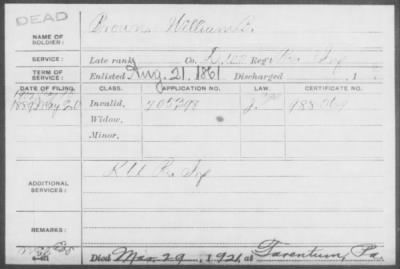 DEAD
NAME OF SOLDIER: Brown William
SERVICE: Late rank Co. Regt Inf
TERM OF SERVICE: Enlisted Aug. 21. 1861 Discharged 1
DATE OF FILING. CLASS. APPLICATION NO. LAW. CERTIFICATE NO.
1889 May 20 Invalid, 705798
Widow,
Minor,
ADDITIONAL SERVICES: K Inf
REMARKS:
Died Mar. 29, 1921, at Tarentum, Pa.